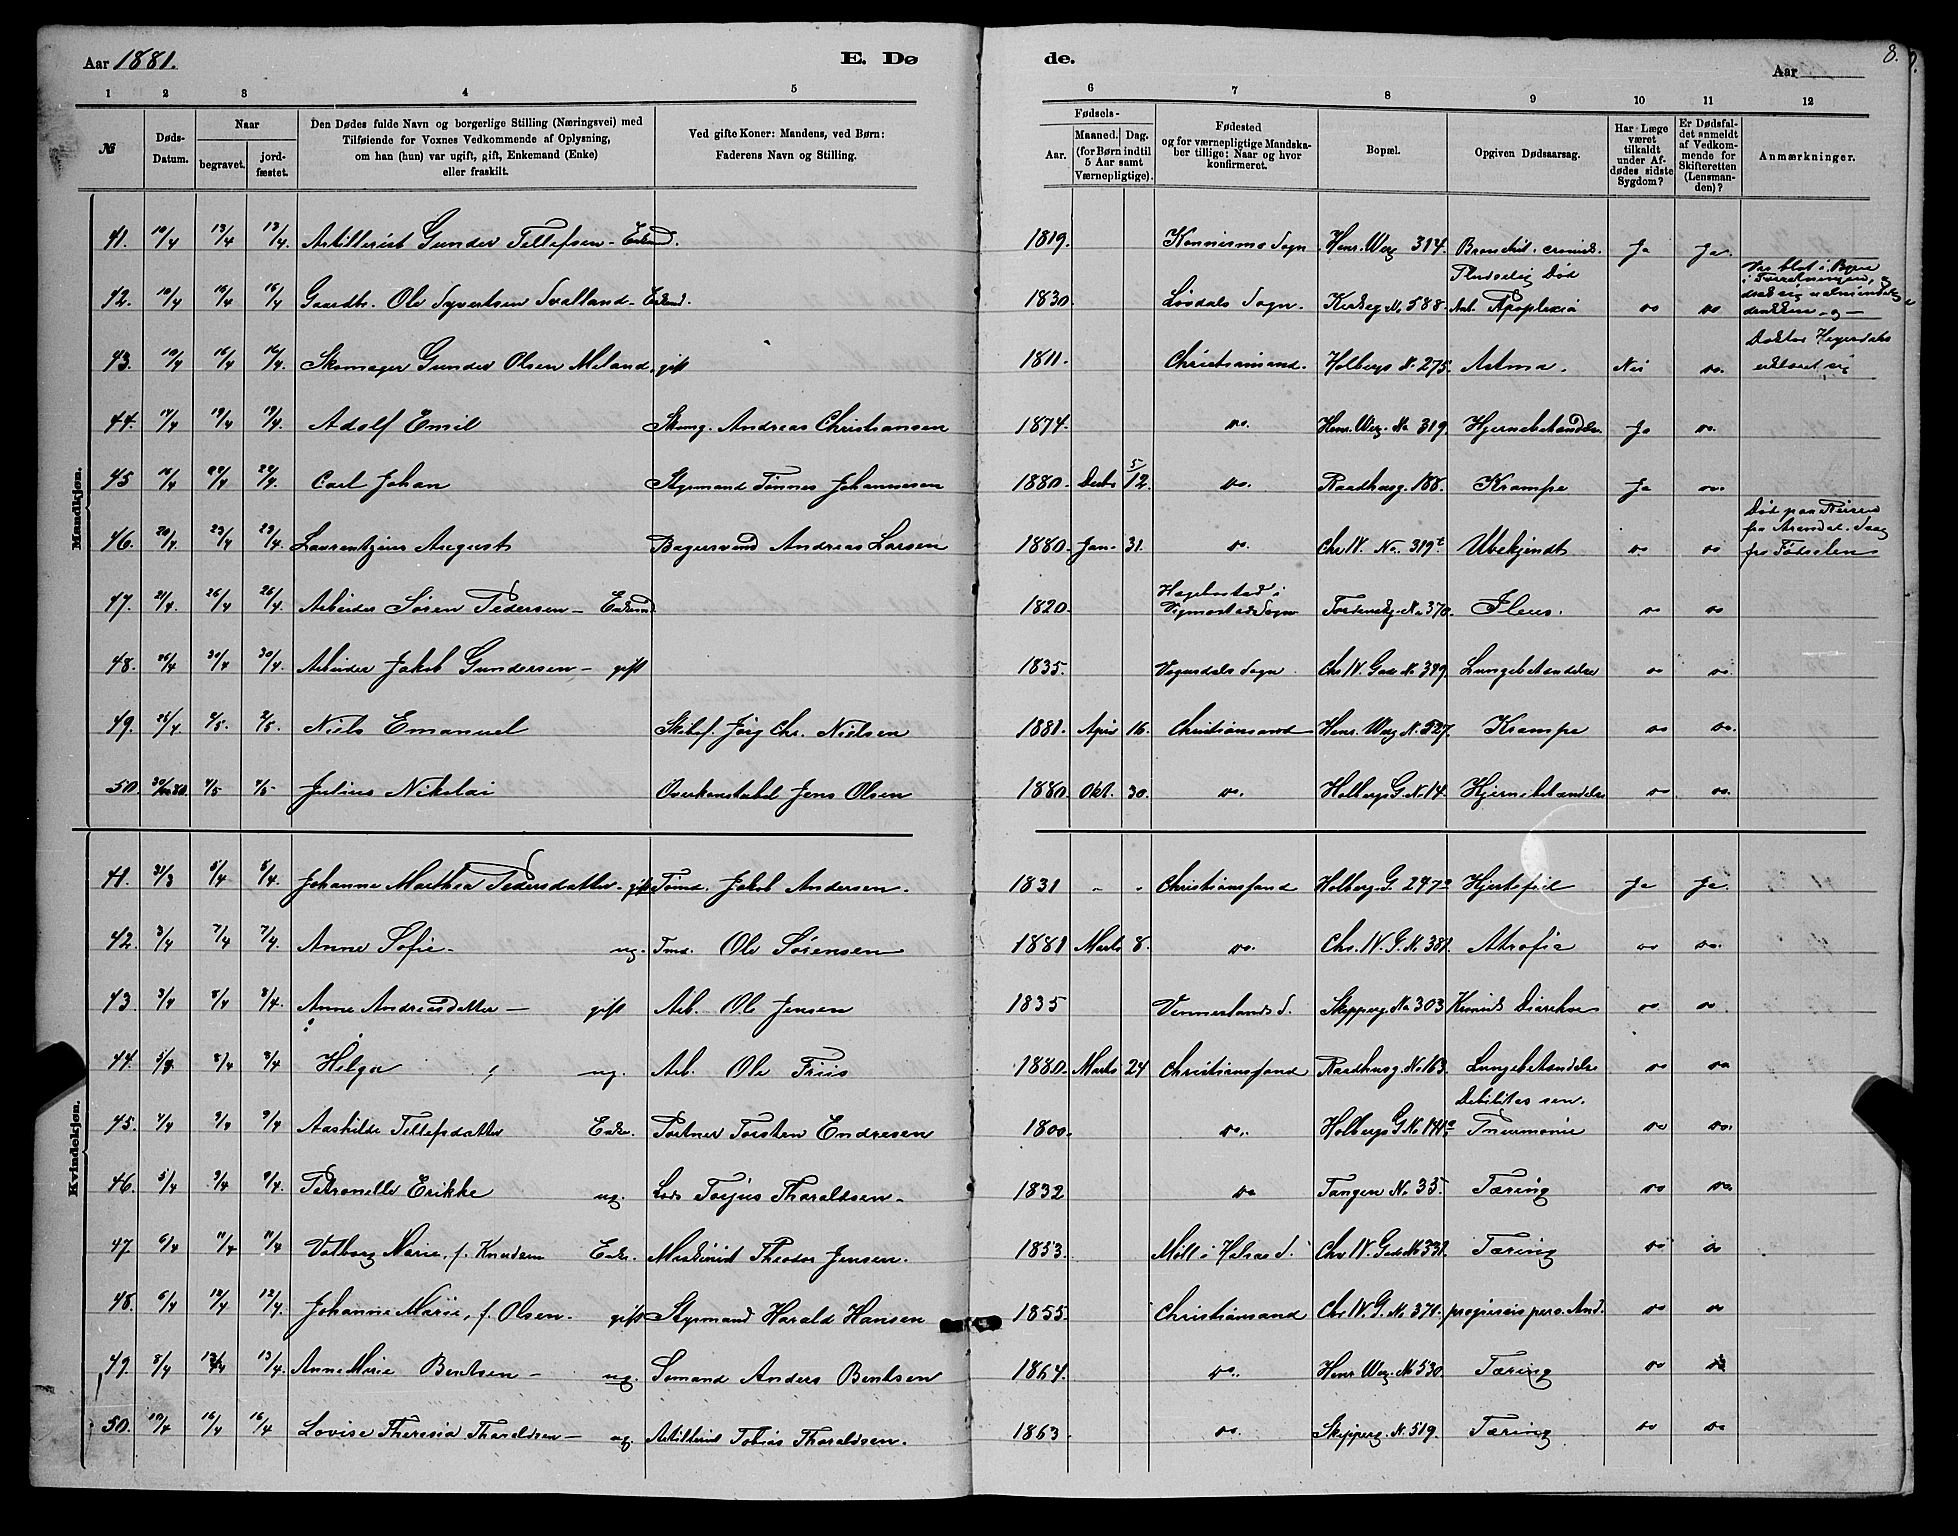 Aar 1881. E. Dø
de. Aar 8.
1 2 3 4 5 6 7 8 9 10 11 12
№ Døds-Datum. Naar begravet. jordfæstet. Den Dødes fulde Navn og borgerlige Stilling (Næringsvei) med Tilføiende for Voxnes Vedkommende af Oplysning, om han (hun) var ugift, gift, Enkemand (Enke) eller fraskilt. Ved gifte Koner: Mandens, ved Børn: Faderens Navn og Stilling. Fødsels- Aar. Maaned. Dag. (for Børn indtil 5 Aar samt Værnepligtige). Fødested og for værnepligtige Mandskaber tillige: Naar og hvor konfirmeret. Bopæl. Opgiven Dødsaarsag. Har Læge været tilkaldt under Afdødes sidste Sygdom? Er Dødsfaldet anmeldt af Vedkommende for Skifteretten (Lensmanden)? Anmærkninger.
Mandkjøn.
41. 10/4 13/4 13/4. Artillerist Gunder Tellefsen - Enkmd. 1819. Konnismo Sogn Henr. Werg 314. Bronchit. cronisk. Ja Ja.
42. 10/4 16/4 16/4 Gaardbr. Ole Syvertsen Svalland - Enkmd. 1830. Løvdals Sogn. Kirkeg. N. 588. Pludselig Død Ant. Apoplexia do do
43. 10/4 16/4 16/4. Skomager Gunder Olsen Meland, gift 1811. Christiansand. Holbergs N. 275. Astma. Nei do.
44. 14/4 19/4 19/4. Adolf Emil Skomg. Andreas Christiansen 1874. do. Henr. Werg. No 319. Hjernebetændelse Ja do.
45 18/4 22/4 Carl Johan Styrmand Tønnes Johannesen 1880. Decbr 5/12. do. Raadhusg. 188. Krampe Ja do.
46. 20/4. 23/4 23/4. Laurentzius August Bagersvend Andreas Larsen 1880. Jan. 31. do. Chr IV. No. 319 Ubekjendt do do Død paa Reisen fra Arendal. Svag fra Fødselen
47. 21/4. 26/4 26/4. Arbeider Søren Pedersen - Enkmd 1820. Hægebostad i Vigmostads Sogn Tordenskg. No 370. Ileus. do do
48. 26/4 30/4 30/4. Arbeider Jakob Gundersen - gift 1835. Vegusdals Sogn Chr IV Gade No 349. Lungebetændelse do do.
49. 26/4 2/5. 2/5. Niels Emanuel Skibsf. Jørg Chr. Nielsen 1881. April 16. Christiansand Henr. Werg N. 527. Krampe do do.
50. 4/5 4/5 Julius Nikolai Overkonstabel Jens Olsen 1880. Okt. 30. do. Holbergs G. N. 14. Hjernebetændelse do do.
Kvindekjøn.
41. 31/3 5/4 5/4. Johanne Marthea Pedersdatter - gift Tømd. Jakob Andersen. 1831 - - Christiansand Holberg. G. 247 Hjertefeil Ja Ja.
42. 3/4 7/4 7/4. Anne Sofie - ug. Tmd. Ole Sørensen 1881 Marts 8. do. Chr. IV. G. No 381. Atrofia do do.
43 3/4 8/4 8/4. Anne Andreasdatter - gift Arb. Ole Jensen 1835 Vennerlands S. Skipperg. No 303 Kronisk Diarrhoe do do
44. 8/4 8/4 Helga ug. Arb. Ole Friis 1880. Marts 24 Christiansand Raadhusg. No 163. Lungebetændelse do do
45. 4/4 9/4 9/4 Aashilde Tellefsdatter Enke. Portner Torsten Endresen 1800. do. Holbergs G No 141 Debilitas sen. Pneumonie do do.
46. 5/4 9/4 9/4. Petronelle Erikke ug. Lods Torjus Tharaldsen - 1832 do Tangen No 35. Tæring do do.
47 6/4 11/4 11/4 Valborg Marie, f. Knudsen Enke. Maskinist Theodor Jensen. 1853. Møll i Halsaa S. Chr IV. Gade No 331. Tæring do do
48. 6/4 12/4 12/4. Johanne Marie, f. Olsen. gift Styrmand Harald Hansen 1855. Christiansand Chr. IV. G. No 371. do do
49. 8/4 13/4 13/4. Anne Marie Bentsen - ug. Sømand Anders Bentsen 1864. do. Henr. Werg. No 530. Tæring do do
50. 10/4 16/4 16/4 Lovise Theresia Tharaldsen - ug. Artillerist Tobias Tharaldsen. 1863 do. Skipperg. N. 519. Tæring do do